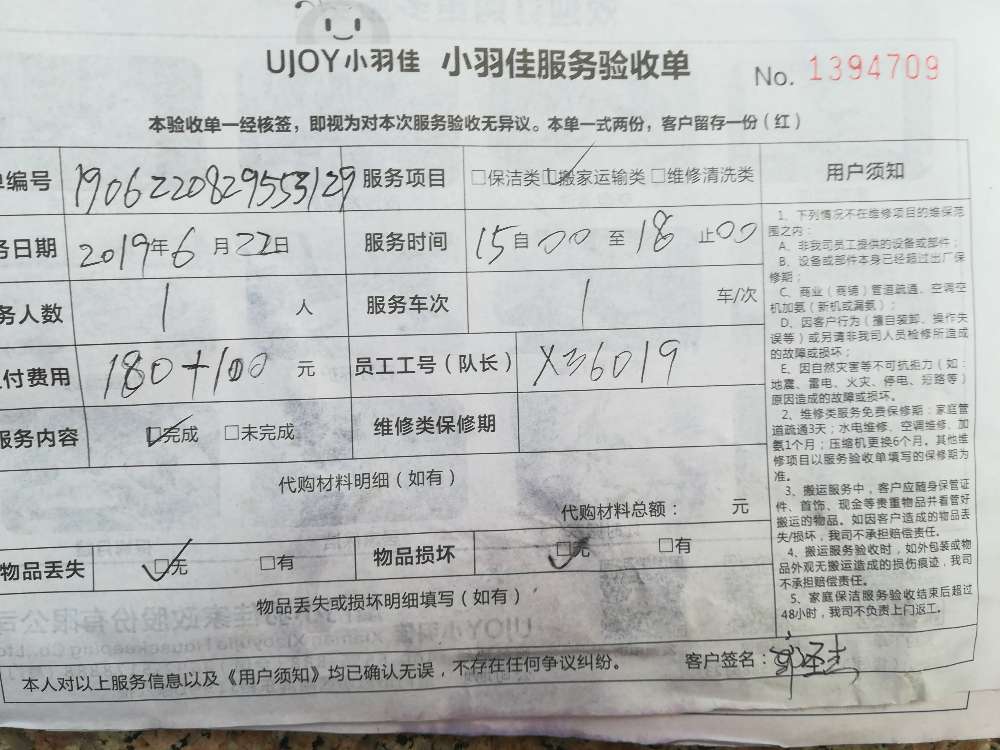 UJOY小羽佳 小羽佳服务验收单 No. 1394709
本验收单一经核签，即视为对本次服务验收无异议。本单一式两份，客户留存一份（红）
单编号 1906220829553129 服务项目 □保洁类 □搬家运输类 □维修清洗类
务日期 2019年6月22日 服务时间 15自00至18止00
务人数 1 人 服务车次 1 车/次
付费用 180+100 元 员工工号（队长） X36019
服务内容 □完成 □未完成 维修类保修期
代购材料明细（如有）
代购材料总额： 元
物品丢失 □无 □有 物品损坏 □无 □有
物品丢失或损坏明细填写（如有）
本人对以上服务信息以及《用户须知》均已确认无误，不存在任何争议纠纷。 客户签名：
用户须知
1、下列情况不在维修项目的维保范
围之内：
A、非我司员工提供的设备或部件；
B、设备或部件本身已经超过出厂保
修期；
C、商业（商铺）管道疏通、空调空
机加氨（新机或漏氨）；
D、因客户行为（擅自装卸、操作失
误等）或另请非我司人员检修所造成
的故障或损坏；
E、因自然灾害等不可抗拒力（如：
地震、雷电、火灾、停电、短路等）
原因造成的故障或损坏。
2、维修类服务免费保修期：家庭管
道疏通3天；水电维修、空调维修、加
氨1个月；压缩机更换6个月。其他维
修项目以服务验收单填写的保修期为
准。
3、搬运服务中，客户应随身保管证
件、首饰、现金等贵重物品并看管好
搬运的物品。如因客户造成的物品丢
失/损坏，我司不承担赔偿责任。
4、搬运服务验收时，如外包装或物
品外观无搬运造成的损伤痕迹，我司
不承担赔偿责任。
5、家庭保洁服务验收结束后超过
48小时，我司不负责上门返工。